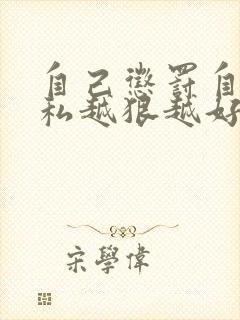 自己懲罰自
私越狠越好
宋學偉